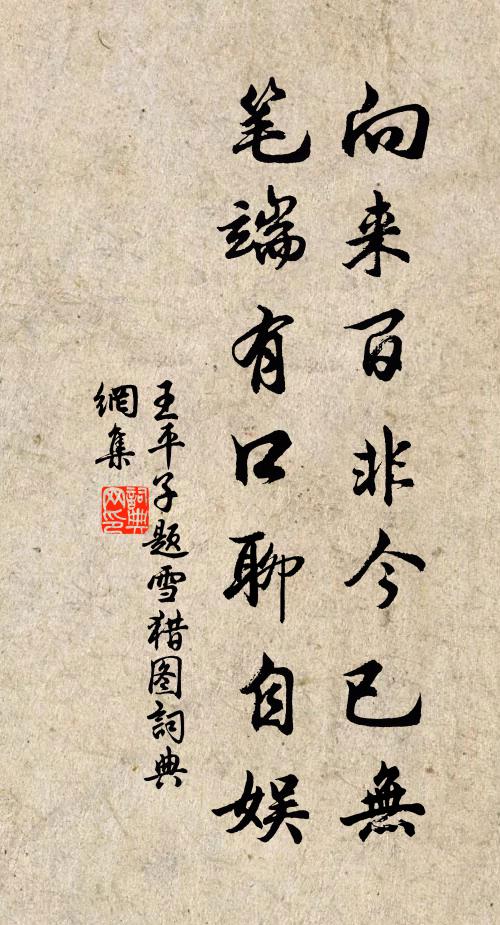 向来百非今已無
笔端有口聊自娱
王平子题雪猎图詞典
網集
詞典
网印